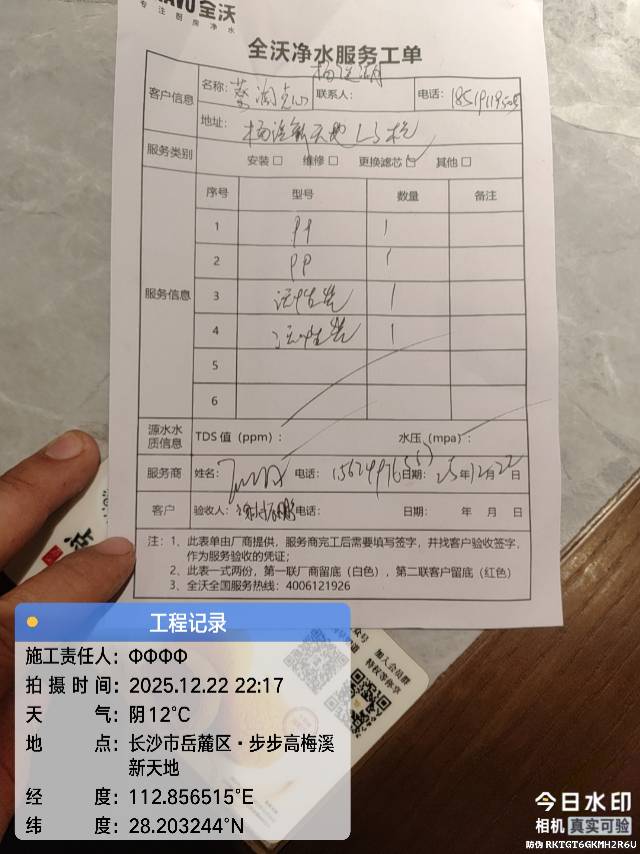 全沃
专注厨房净水
全沃净水服务工单
客户信息
名称：
联系人：
电话：
地址：
服务类别
安装□ 维修□ 更换滤芯□ 其他□
序号 型号 数量 备注
服务信息
1 PP 1
2 PP 1
3 活性炭 1
4 活性炭 1
5
6
源水水质信息
TDS值（ppm）： 水压（mpa）：
服务商 姓名： 电话： 日期：25年12月22日
客户 验收人： 电话： 日期： 年 月 日
注：1、此表单由厂商提供，服务商完工后需要填写签字，并找客户验收签字，
作为服务验收的凭证；
2、此表一式两份，第一联厂商留底（白色），第二联客户留底（红色）
3、全沃全国服务热线：4006121926
加入会员群
特权等你享
工程记录
施工责任人：ΦΦΦΦ
拍摄时间：2025.12.22 22:17
天气：阴12℃
地点：长沙市岳麓区·步步高梅溪
新天地
经度：112.856515°E
纬度：28.203244°N
今日水印
相机 真实可验
防伪 RKTGT6GKMH2R6U